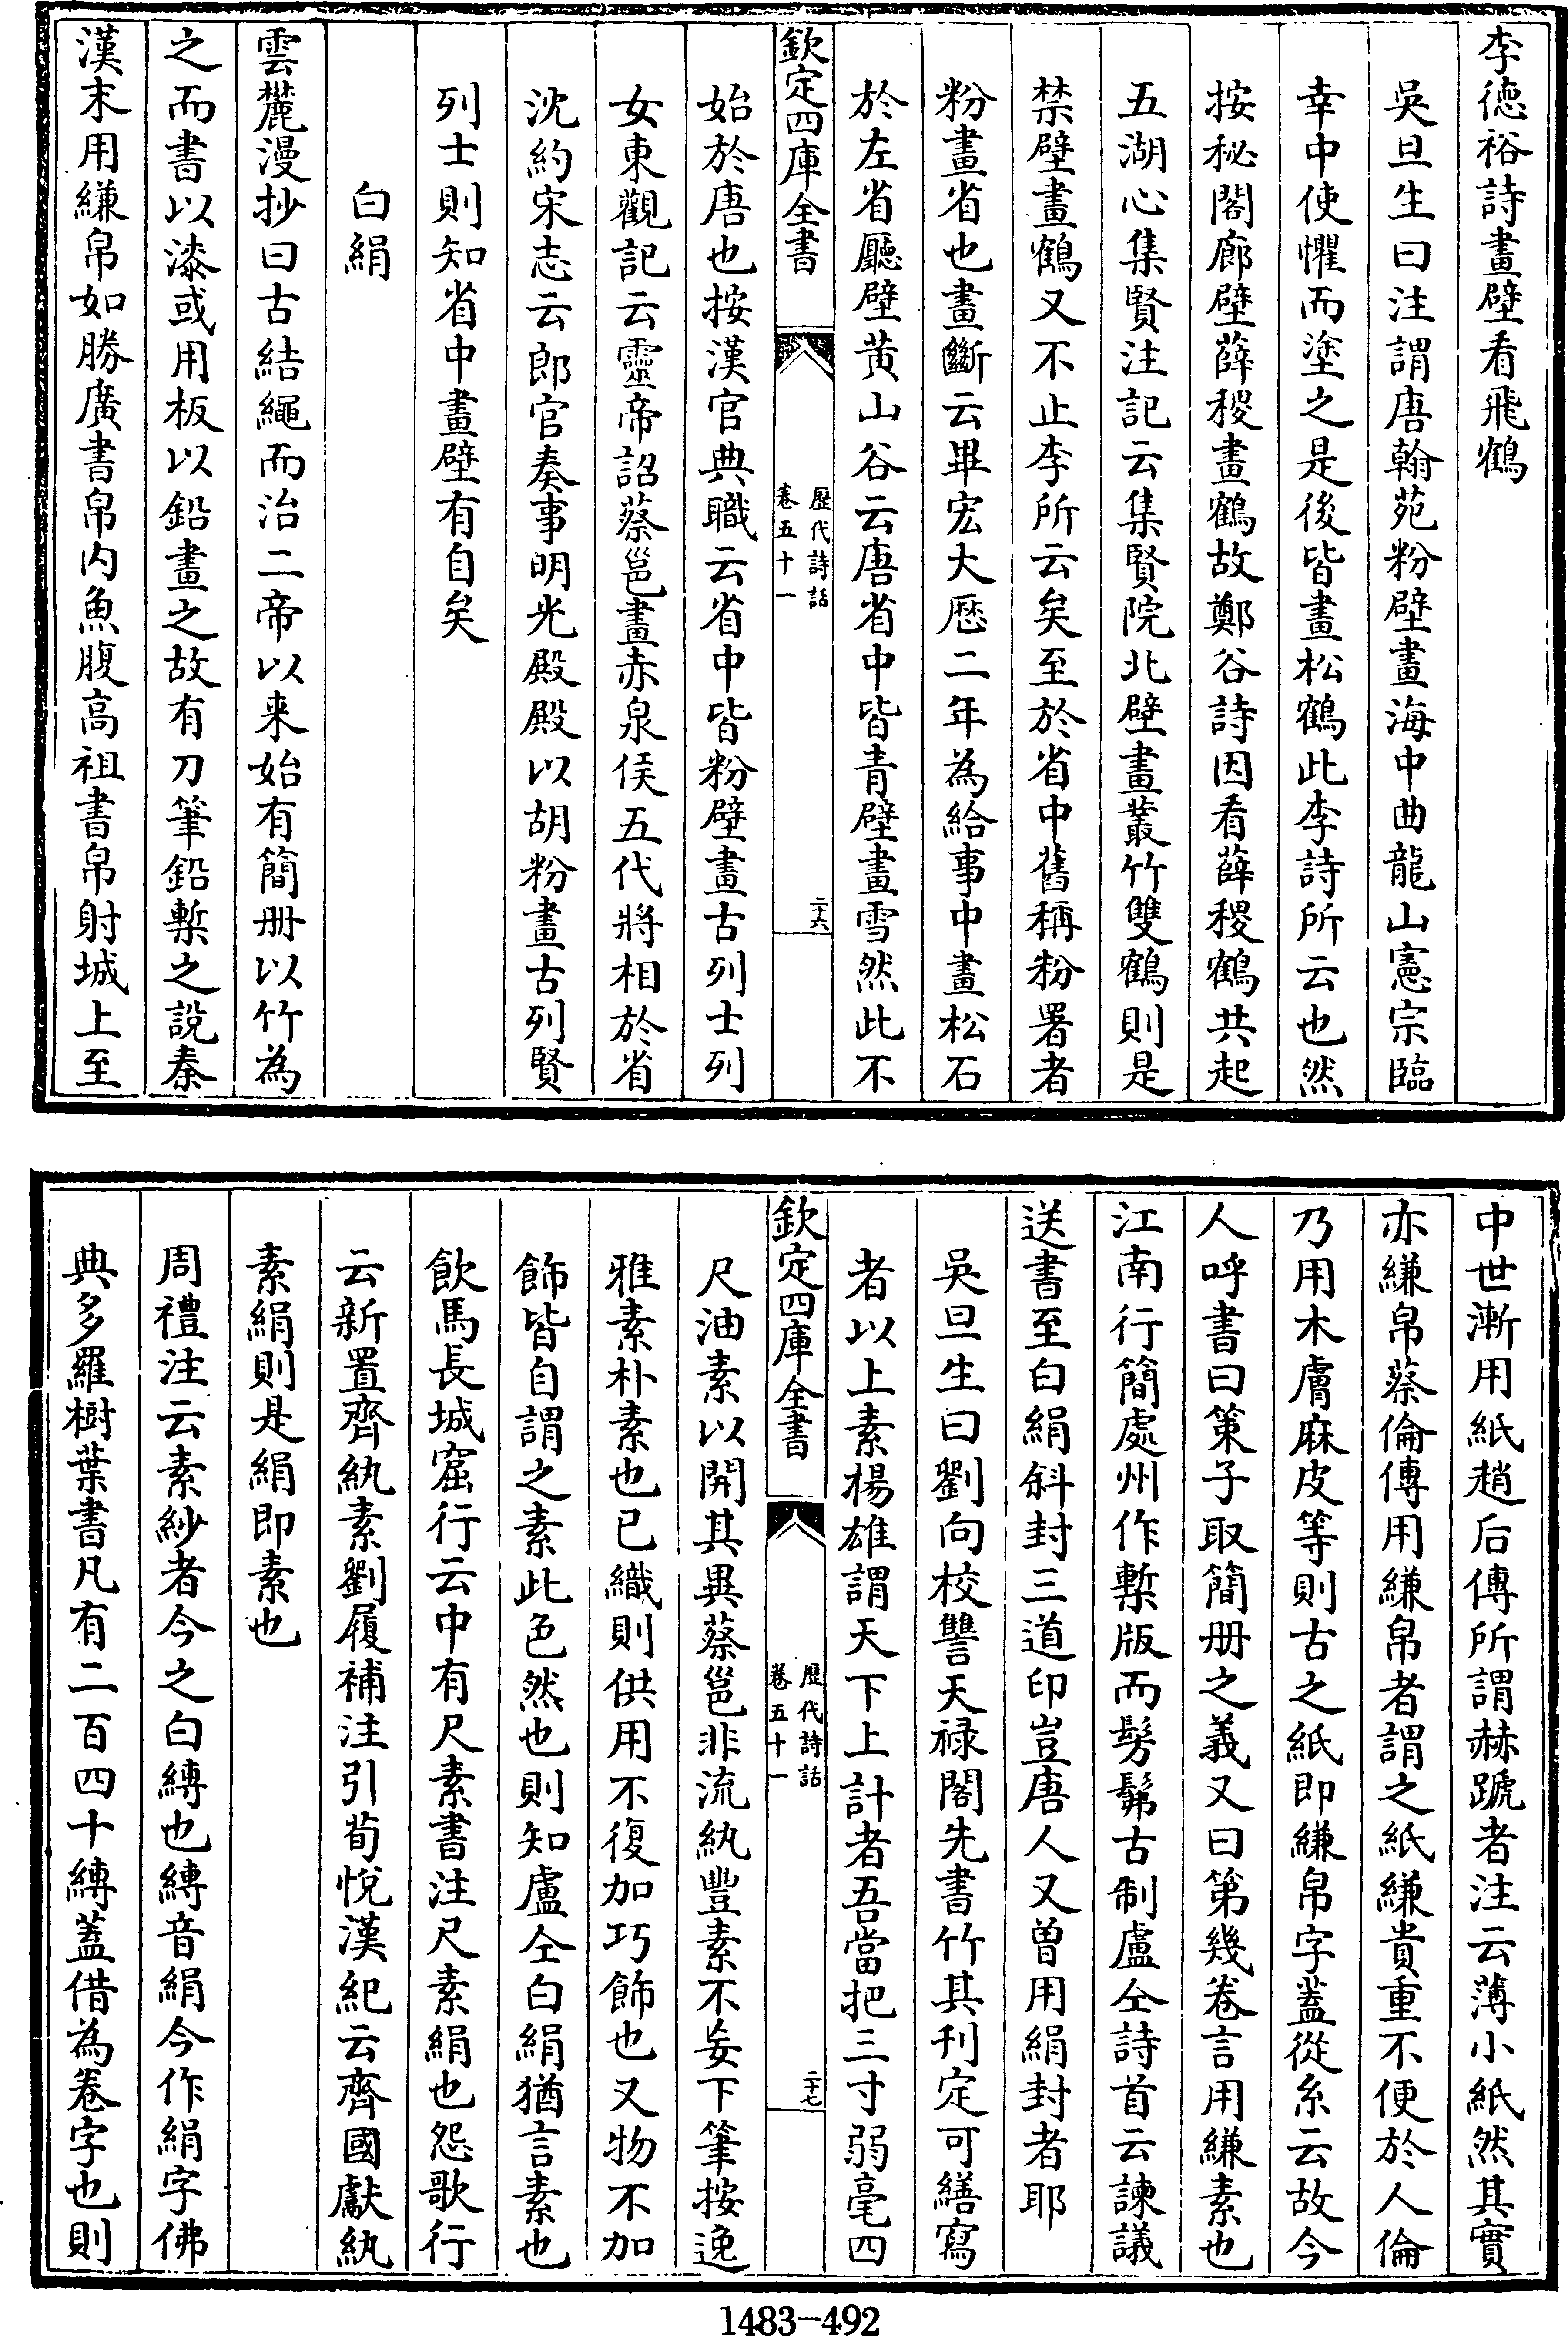 李德裕詩畫壁看飛鶴
吳旦生曰注謂唐翰苑粉壁畫海中曲龍山憲宗臨
幸中使懼而塗之是後皆畫松鶴此李詩所云也然
按秘閣廊壁薛稷畫鶴故鄭谷詩因看薛稷鶴共起
五湖心集賢注記云集賢院北壁畫叢竹雙鶴則是
禁壁畫鶴又不止李所云矣至於省中舊稱粉署者
粉畫省也畫斷云畢宏大厯二年為給事中畫松石
於左省廳壁黄山谷云唐省中皆青壁畫雪然此不
欽定四庫全書
歷代詩話
卷五十一
二十六
始於唐也按漢官典職云省中皆粉壁畫古列士列
女東觀記云靈帝詔蔡邕畫赤泉侯五代將相於省
沈約宋志云郎官奏事明光殿殿以胡粉畫古列賢
列士則知省中畫壁有自矣
白絹
雲麓漫抄曰古結繩而治二帝以来始有簡册以竹為
之而書以漆或用板以鉛畫之故有刀筆鉛槧之說秦
漢末用縑帛如勝廣書帛内魚腹高祖書帛射城上至
中世漸用紙趙后傳所謂赫蹏者注云薄小紙然其實
亦縑帛蔡倫傳用縑帛者謂之紙縑貴重不便於人倫
乃用木膚麻皮等則古之紙即縑帛字蓋從糸云故今
人呼書曰策子取簡册之義又曰第幾卷言用縑素也
江南行簡處州作槧版而髣髴古制盧仝詩首云諫議
送書至白絹斜封三道印豈唐人又曽用絹封者耶
吳旦生曰劉向校讐天禄閣先書竹其刋定可繕寫
者以上素楊雄謂天下上計者吾當把三寸弱毫四
欽定四庫全書
歷代詩話
卷五十一
二十七
尺油素以開其異蔡邕非流紈豐素不妄下筆按逸
雅素朴素也已織則供用不復加巧飾也又物不加
飾皆自謂之素此色然也則知盧仝白絹猶言素也
飲馬長城窟行云中有尺素書注尺素絹也怨歌行
云新置齊紈素劉履補注引荀悅漢紀云齊國獻紈
素絹則是絹即素也
周禮注云素紗者今之白縳也縳音絹今作絹字佛
典多羅樹葉書凡有二百四十縳蓋借為卷字也則
1483-492